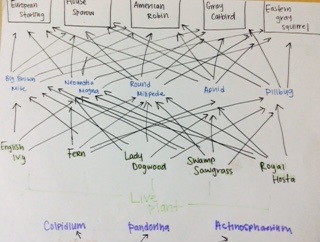 European
Starling
House
Sparrow
American
Robin
Gray
Catbird
Eastern
gray
squirrel
Big Brown
Mite
Magna
Round
Millipede
Aphid
Pillbug
English
Ivy
Fern
Lady
Dogwood
Swamp
Sawgrass
Royal
Hosta
Live
Plant
Colpidium
Pandorina
Actinosphaerium